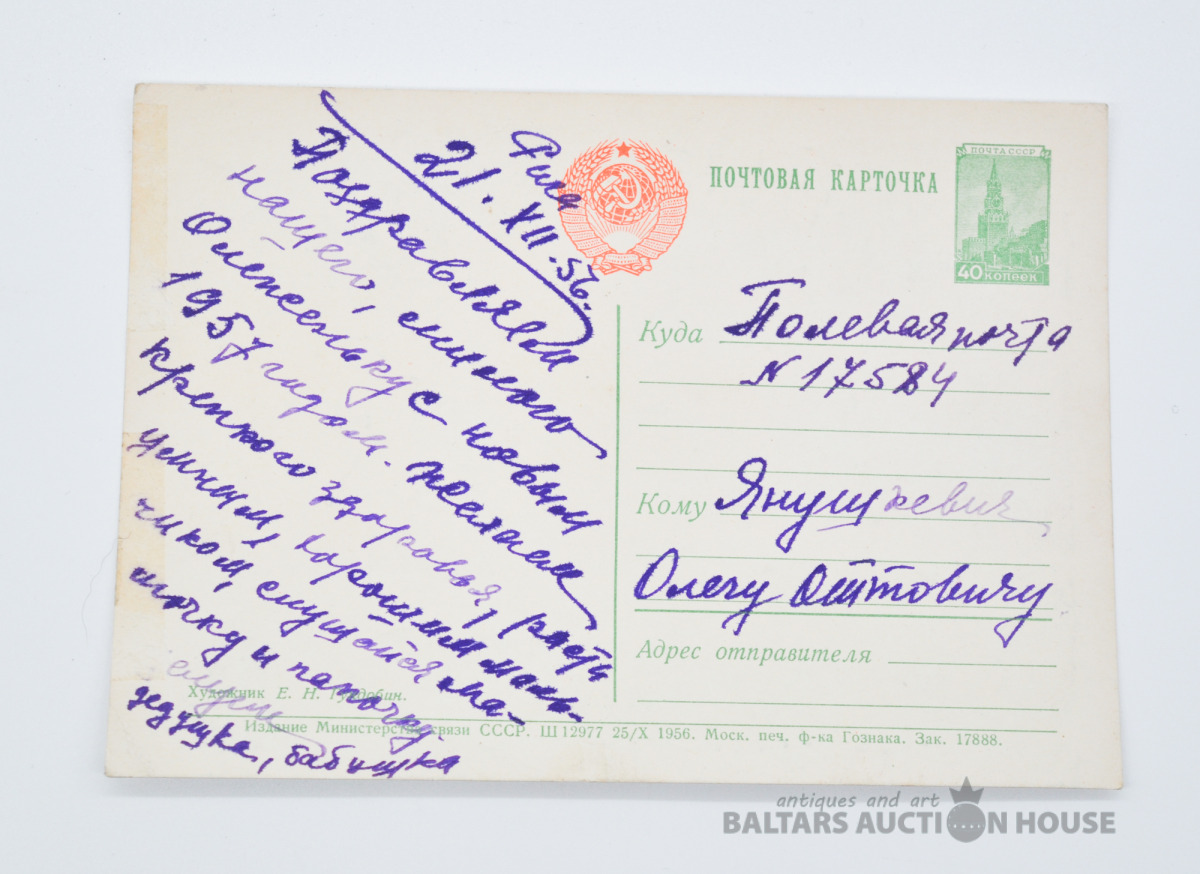 Рига
21.XII.56.
Поздравляем
нашего, милого
Олеженьку с новым
1957 годом. Желаем
крепкого здоровья, расти
умным, хорошим маль-
чиком, слушайся ма-
мочку и папочку
дедушка, бабушка
Художник Е. Н. Гундобин.
ПОЧТОВАЯ КАРТОЧКА
ПОЧТА СССР
40 КОПЕЕК
Куда Полевая почта
N 17584
Кому Янушкевич
Олегу Оттовичу
Адрес отправителя
Издание Министерства связи СССР. Ш 12977 25/X 1956. Моск. печ. ф-ка Гознака. Зак. 17888.
antiques and art
BALTARS AUCTION HOUSE